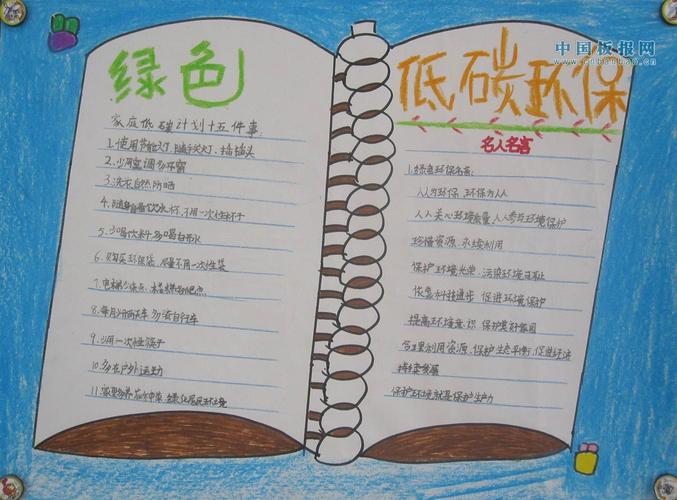 绿色
家庭低碳计划十五件事
1.使用节能灯,随手关灯、拔插头
2.少用空调
3.洗衣自然晾晒
4.随身自带饮水杯,不用一次性杯子
5.少喝饮料多喝白开水
6.购买环保袋,尽量不用一次性袋
7.电梯少乘点
8.每月少开两天车多骑自行车
9.少用一次性筷子
10.多在户外运动
11.家里多养花种草,绿化居民环境
低碳环保
名人名言
1.绿色环保名言:
人人为环保,环保为人人
人人关心环境质量,人人参与环境保护
珍惜资源,永续利用
保护环境光荣,污染环境可耻
依靠科技进步 促进环境保护
提高环境意识,保护美好家园
合理利用资源,保护生态平衡,促进经济
持续发展
保护环境就是保护生产力
中国板报网
www.cnbanbao.cn